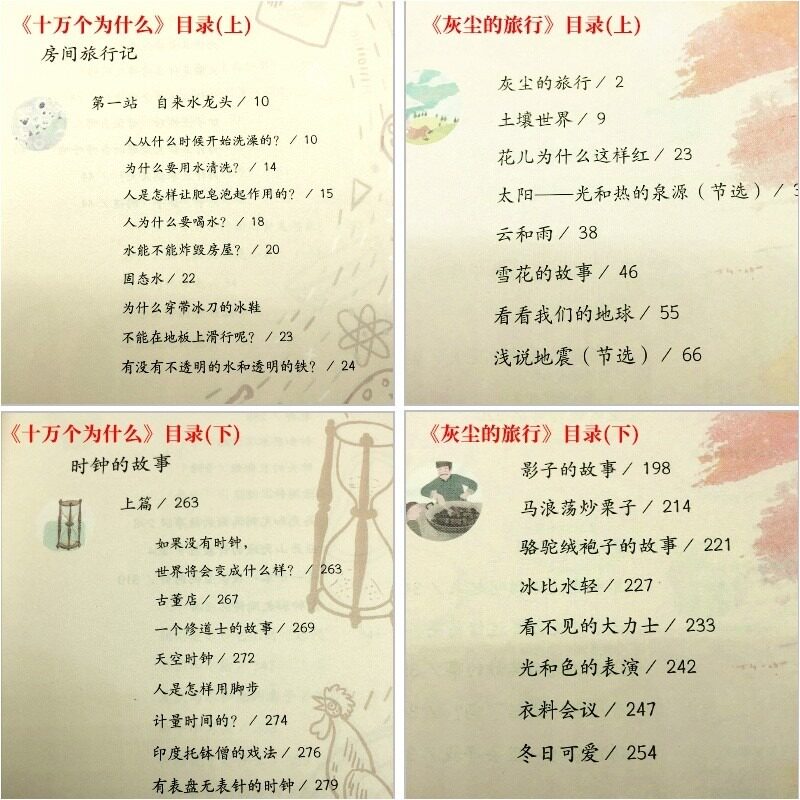 《十万个为什么》目录(上)
房间旅行记
第一站 自来水龙头 / 10
人从什么时候开始洗澡的? / 10
为什么要用水清洗? / 14
人是怎样让肥皂泡起作用的? / 15
人为什么要喝水? / 18
水能不能炸毁房屋? / 20
固态水 / 22
为什么穿带冰刀的冰鞋
不能在地板上滑行呢? / 23
有没有不透明的水和透明的铁? / 24
《灰尘的旅行》目录(上)
灰尘的旅行 / 2
土壤世界 / 9
花儿为什么这样红 / 23
太阳——光和热的泉源（节选） /
云和雨 / 38
雪花的故事 / 46
看看我们的地球 / 55
浅说地震（节选） / 66
《十万个为什么》目录(下)
时钟的故事
上篇 / 263
如果没有时钟，
世界将会变成什么样? / 263
古董店 / 267
一个修道士的故事 / 269
天空时钟 / 272
人是怎样用脚步
计量时间的? / 274
印度托钵僧的戏法 / 276
有表盘无表针的时钟 / 279
《灰尘的旅行》目录(下)
影子的故事 / 198
马浪荡炒栗子 / 214
骆驼绒袍子的故事 / 221
冰比水轻 / 227
看不见的大力士 / 233
光和色的表演 / 242
衣料会议 / 247
冬日可爱 / 254